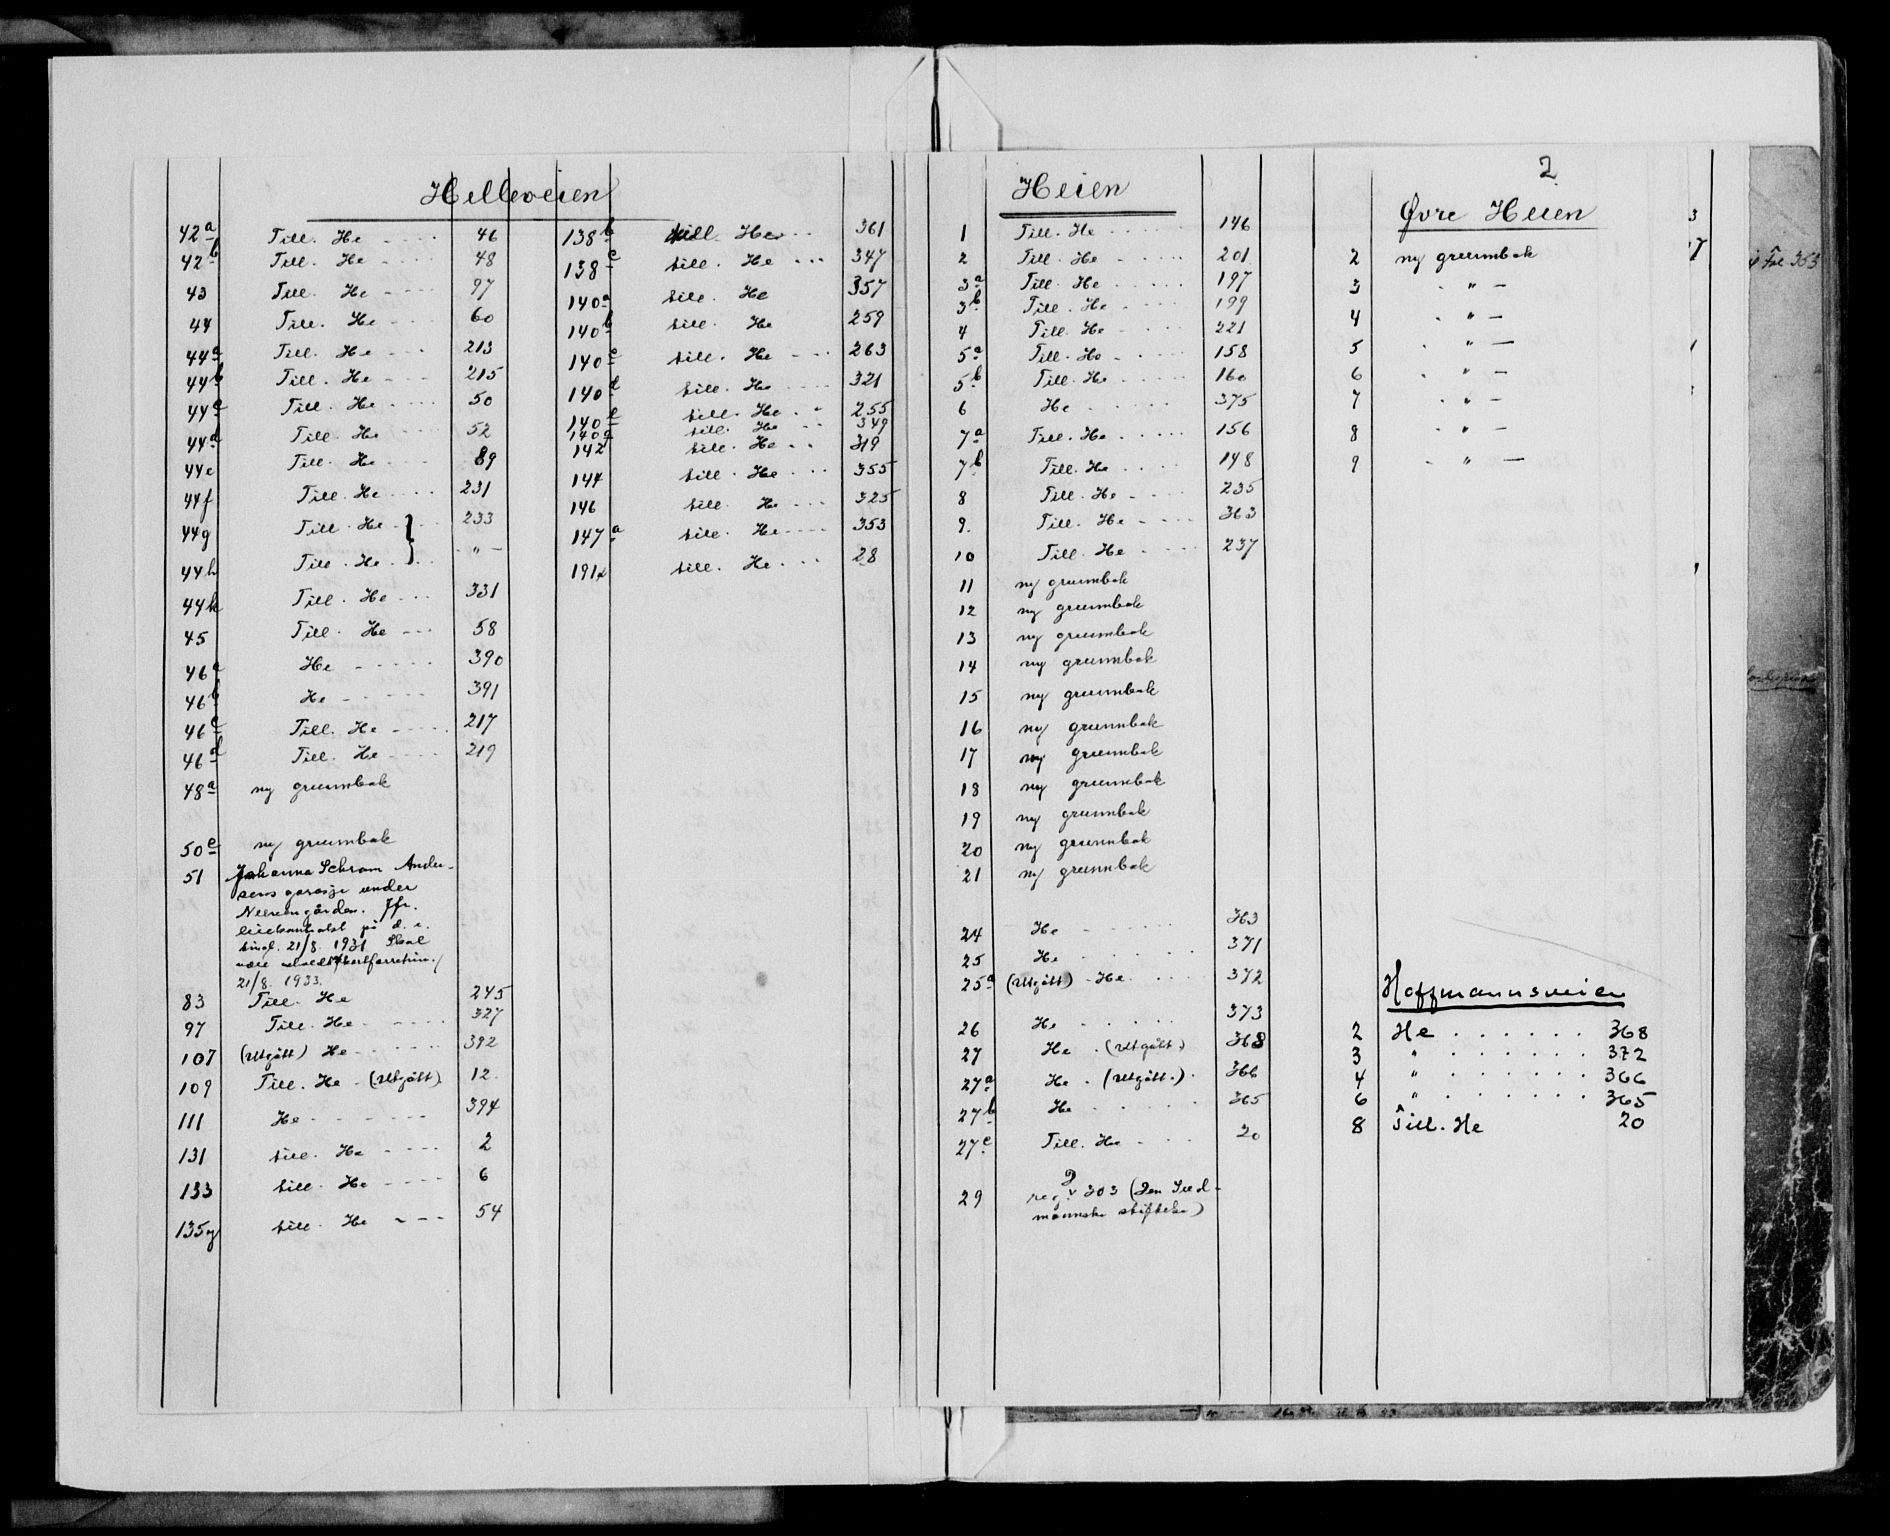 Helleveien
42a Till. He - - - - 46
42b Till. He - - - - 48
43 Till. He - - - - 97
44 Till. He - - - 60
44a Till. He - - - - 213
44b Till. He - - - - 215
44c Till. He - - - - 50
44d Till. He - - - - 52
44e Till. He - - - - 89
44f Till. He - - - - 231
44g Till. He - } - - 233
44h Till. He - } - - - " -
44k Till. He - - - 331
45 Till. He - - - 58
46a He - - - - - 390
46b He - - - - - 391
46c Till. He - - - - - 217
46d Till. He - - - - 219
48a ny grunnbok
50c ny grunnbok
51 Johanna Schram Ander-
sens garasje under
gården. Jfr.
på d. e.
tingl. 21/8. 1931 Skal
være
21/8. 1933.
83 Till. He 245
97 Till. He - - - - - 327
107 (Utgått) He - - - - - 392
109 Till. He - (Utgått) 12.
111 He - - - - - 394
131 till. He - - - - 2
133 till. He - - - - 6
135g till. He - - - 54
138b till. He - - 361
138c till. He - - - 347
140a till. He 357
140b till. He 259
140c till. He - - - 263
140d till. He - - - - 321
140e till. He - - 255
140g till. He - - 349
142 till. He - - 319
144 till. He - - - 355
146 till. He - - - 325
147a till. He - - - - 353
191 till. He - - - 28
Heien
1 Till. He - - - - - - 146
2 Till. He - - - - - 201
3a Till. He - - - - - 197
3b Till. He - - - - 199
4 Till. He - - - - 221
5a Till. He - - - - - 158
5b Till. He - - - - - 160
6 He - - - - - - 375
7a Till. He - - - - - 156
7b Till. He - - - - 148
8 Till. He - - - - 235
9. Till. He - - - - - 363
10 Till. He - - - - 237
11 ny grunnbok
12 ny grunnbok
13 ny grunnbok
14 ny grunnbok
15 ny grunnbok
16 ny grunnbok
17 ny grunnbok
18 ny grunnbok
19 ny grunnbok
20 ny grunnbok
21 ny grunnbok
24 He - - - - - - 363
25 He - - - - - - 371
25a (Utgått) - He - - - - 372
26 He - - - - - - 373
27 He - (Utgått) 368
27a He - (Utgått.) - 366
27b He - - - - - - 365
27c Till. He - - - 20
29 reg. v 303 (Den
stiftelse)
2
Øvre Heien
2 ny grunnbok
3 - " -
4 - " -
5 - " -
6 - " -
7 - " -
8 - " -
9 - " -
Hoffmannsveien
2 He . . . . . . 368
3 " . . . . . . 372
4 " . . . . . . 366
6 " . . . . . . 365
8 Till. He 20
3
17
Fol 353